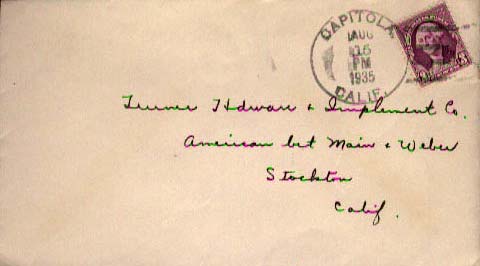 CAPITOLA
AUG
15
PM
1935
CALIF.
3
Hdware & Implement Co.
American bet Main & Weber
Stockton
Calif.